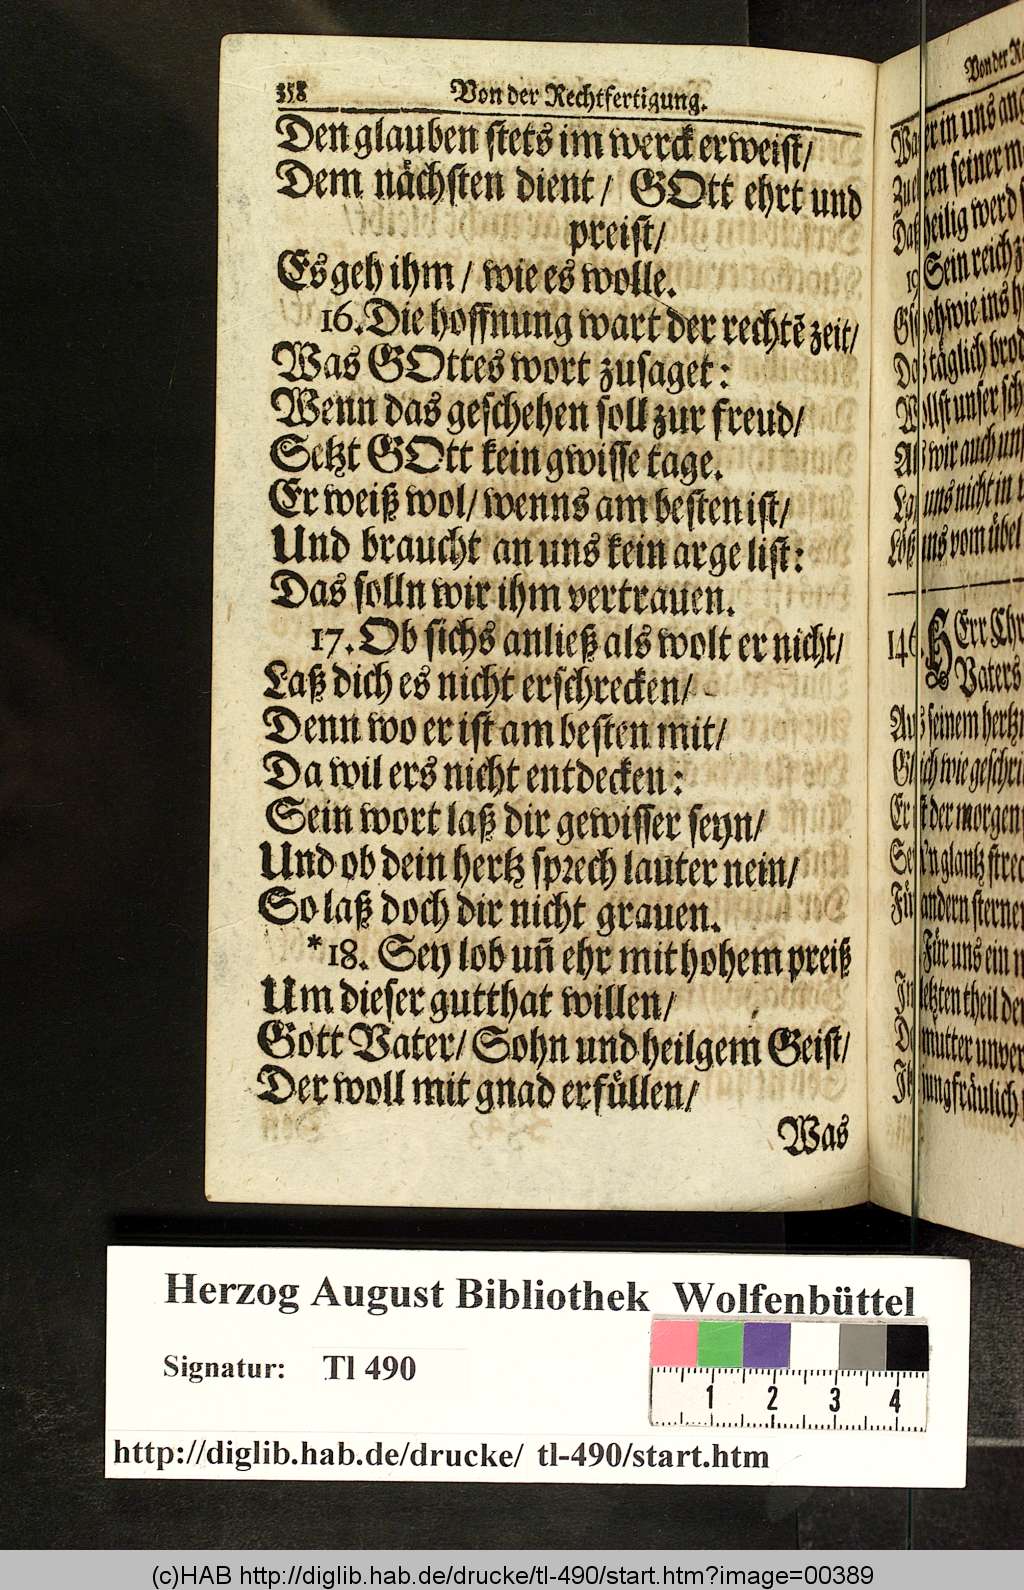 358
Von der Rechtfertigung.
Den glauben stets im werck erweist/
Dem nächsten dient/ GOtt ehrt und
preist/
Es geh ihm/ wie es wolle.
16. Die hoffnung wart der rechtẽ zeit/
Was GOttes wort zusaget:
Wenn das geschehen soll zur freud/
Setzt GOtt kein gwisse tage.
Er weiß wol/ wenns am besten ist/
Und braucht an uns kein arge list:
Das solln wir ihm vertrauen.
17. Ob sichs anließ als wolt er nicht/
Laß dich es nicht erschrecken/
Denn wo er ist am besten mit/
Da wil ers nicht entdecken:
Sein wort laß dir gewisser seyn/
Und ob dein hertz sprech lauter nein/
So laß doch dir nicht grauen.
*18. Sey lob uñ ehr mit hohem preiß
Um dieser gutthat willen/
Gott Vater/ Sohn und heilgem Geist/
Der woll mit gnad erfüllen/
Was
Von der
in uns
seiner
heilig werd
19
Sein reich
wie ins
täglich brod
unser
wir auch
uns nicht in
uns vom übel
146.
HErr
Vaters
seinem
wie
der morgen
glantz
andern sternen
Für uns ein
letzten theil
mutter
jungfräulich
Herzog August Bibliothek Wolfenbüttel
Signatur: Tl 490
1 2 3 4
http://diglib.hab.de/drucke/ tl-490/start.htm
(c)HAB http://diglib.hab.de/drucke/tl-490/start.htm?image=00389